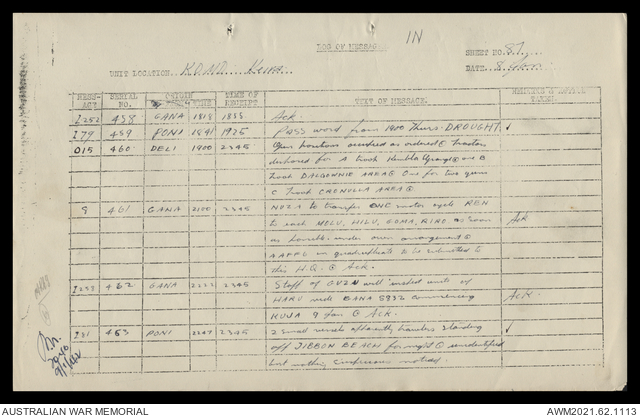 LOG OF MESSAGES IN
SHEET NO. 87
UNIT LOCATION K.O.N.O. Keira DATE 8 Jan
MESSAGE SERIAL NO. ORIGIN "FROM" TIME TIME OF RECEIPT TEXT OF MESSAGE. TAKEN.
I252 458 GANA 1818 1855 Ack.
I79 459 PONI 1841 1925 Pass word from 1900 Thurs. DROUGHT ✓
O15 460 DELI 1900 2345 Gun positions occupied as ordered @ Tractors
for A troop Kembla Grange @ one B
troop DALDOWNIE AREA @ One for two guns
C troop CRONULLA AREA @
9 461 GANA 2100 2345 NUZA to transfer ONE motor cycle BSN
to each MOLU, HILU, GOMA, RIRO as soon Ack
as possible under own arrangements @
AAFFC in quadruplicate to be submitted to
this H.Q. @ Ack.
I258 462 GANA 2222 2345 Staff of GUZU will inspect units of
HARU vide GANA 5932 commencing Ack.
KUJA 9 Jan @ Ack.
I81 463 PONI 2247 2345 2 small vessels apparently trawlers standing ✓
off JIBBON BEACH for night @ unidentified
but nothing suspicious noticed.
9/1/42
AUSTRALIAN WAR MEMORIAL AWM2021.62.1113